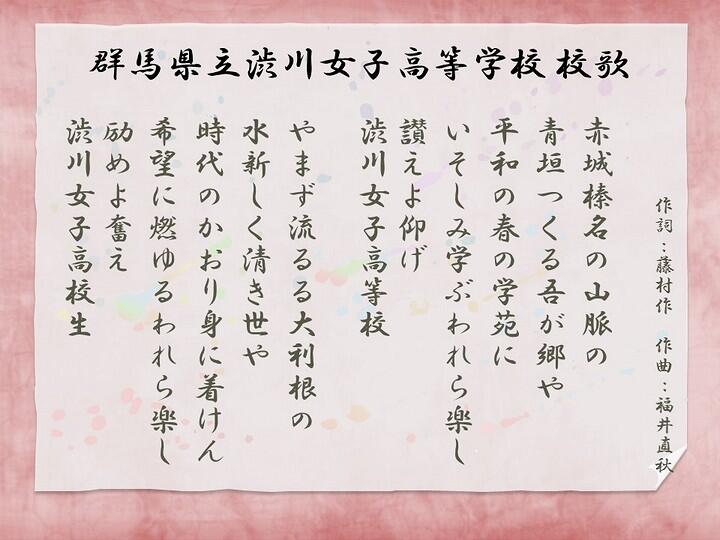 群馬県立渋川女子高等学校 校歌
作詞：藤村作　作曲：福井直秋
赤城榛名の山脈の
青垣つくる吾が郷や
平和の春の学苑に
いそしみ学ぶわれら楽し
讃えよ仰げ
渋川女子高等校
やまず流るる大利根の
水新しく清き世や
時代のかおり身に着けん
希望に燃ゆるわれら楽し
励めよ奮え
渋川女子高校生